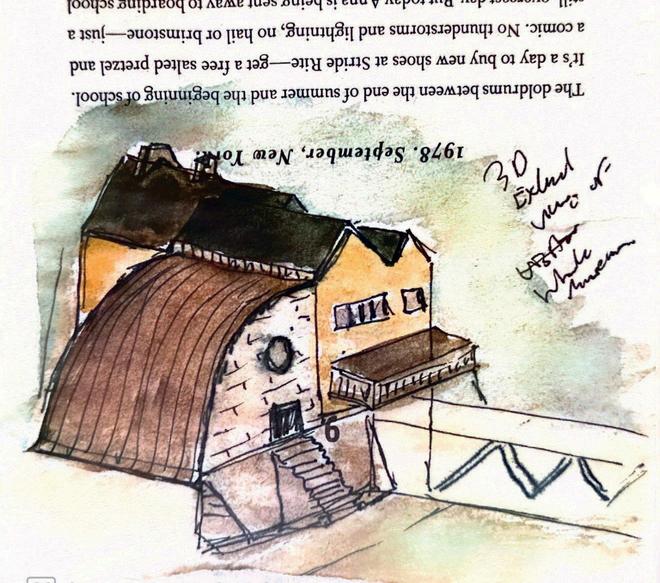 9
1978. September, New York.
The doldrums between the end of summer and the beginning of school.
It's a day to buy new shoes at Stride Rite—get a free salted pretzel and
a comic. No thunderstorms and lightning, no hail or brimstone—just a
still, overcast day. But today Anna is being sent away to boarding school
3D
view of
Museum